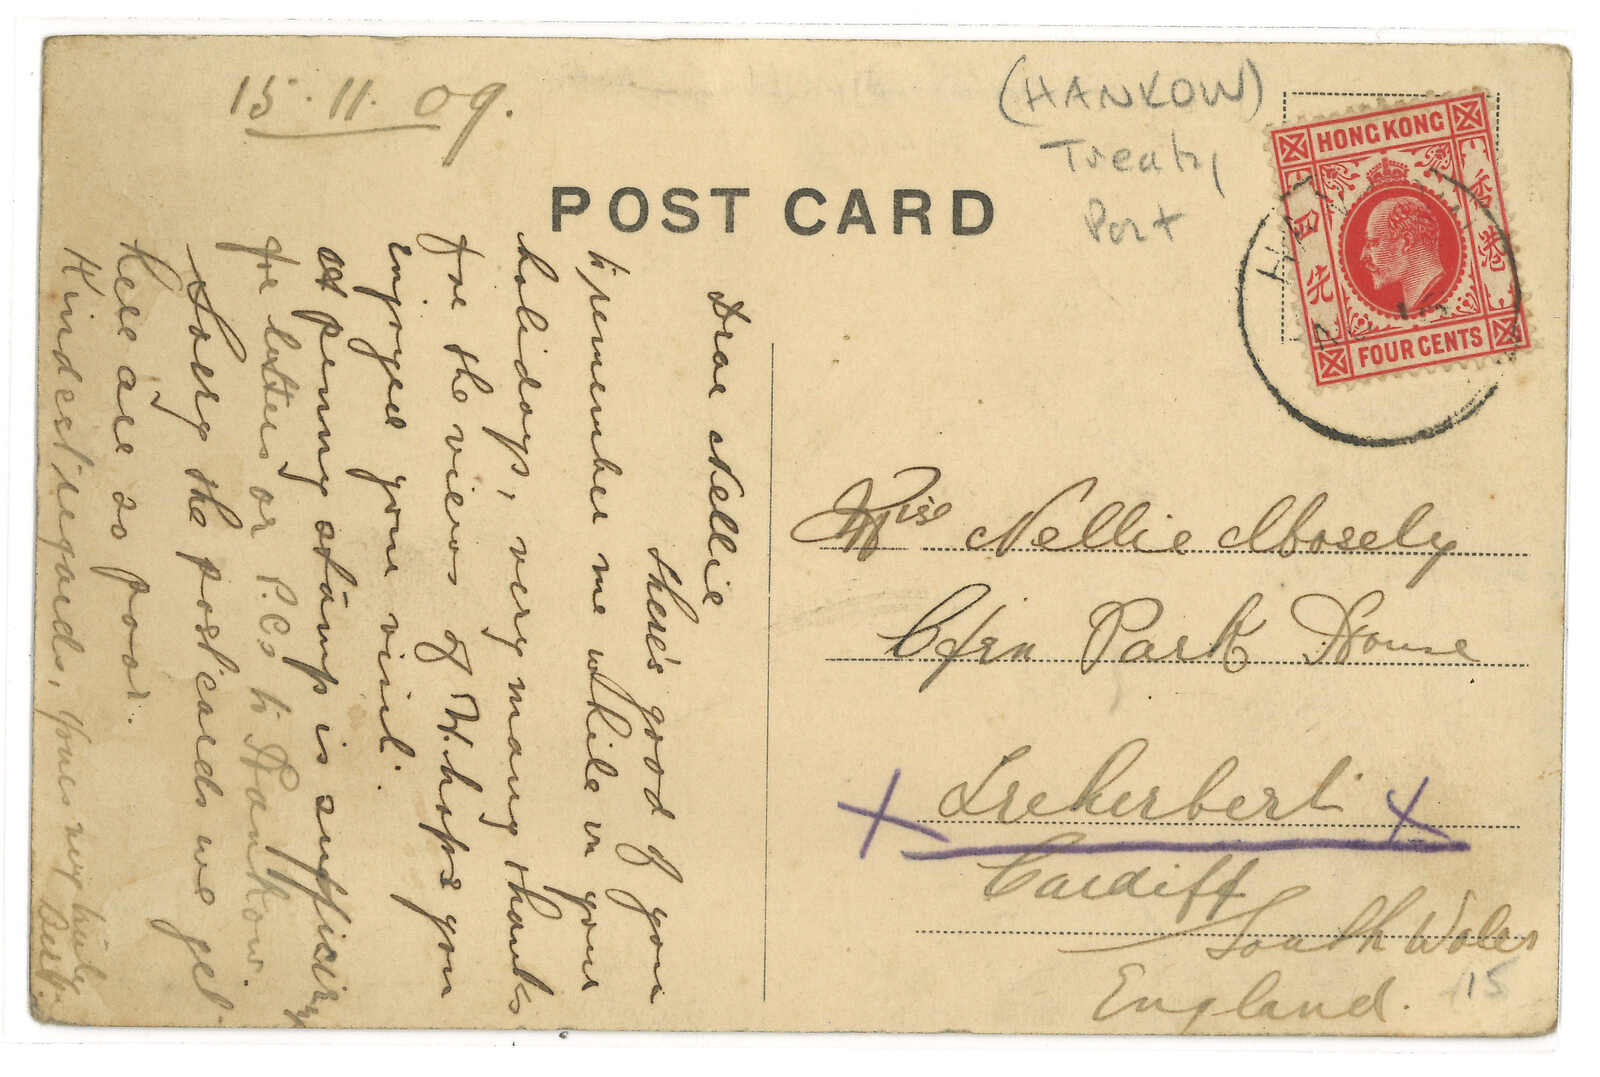 15.11.09.
(HANKOW)
Treaty
Port
POST CARD
HONG KONG
香港
四先
FOUR CENTS
HAN
Dear Nellie
there's good of you
to remember me while on your
holidays, very many thanks
for the views of W. hope you
enjoyed your visit.
A penny stamp is sufficient
for letters or P.C's to Hankow.
Sorry the postcards we get
here are so poor.
Kindest regards, Yours very truly
Bert.
Miss Nellie Mosely
Park House
Treherbert
Cardiff
South Wales
England.
15